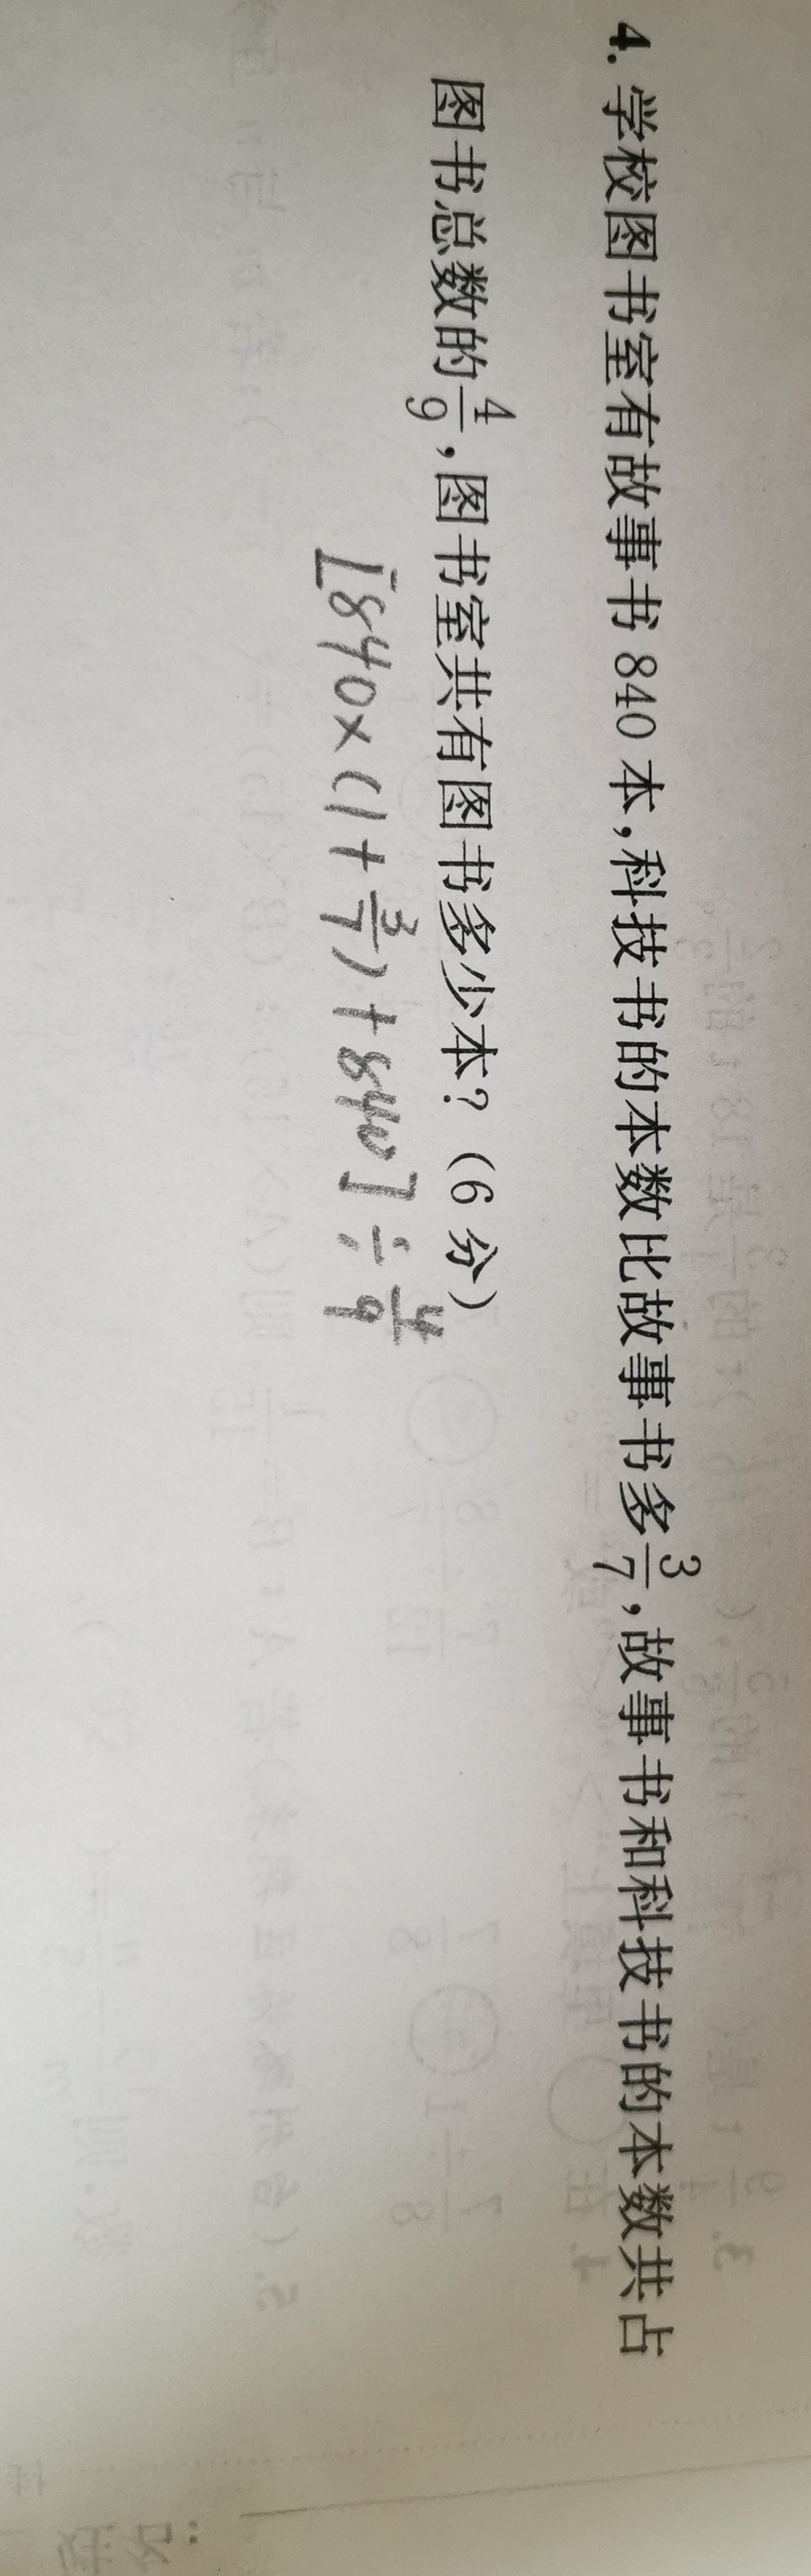 4. 学校图书室有故事书 840 本,科技书的本数比故事书多3/7,故事书和科技书的本数共占
图书总数的4/9,图书室共有图书多少本?(6 分)
[840×(1+3/7)+840]÷4/9
姓名: